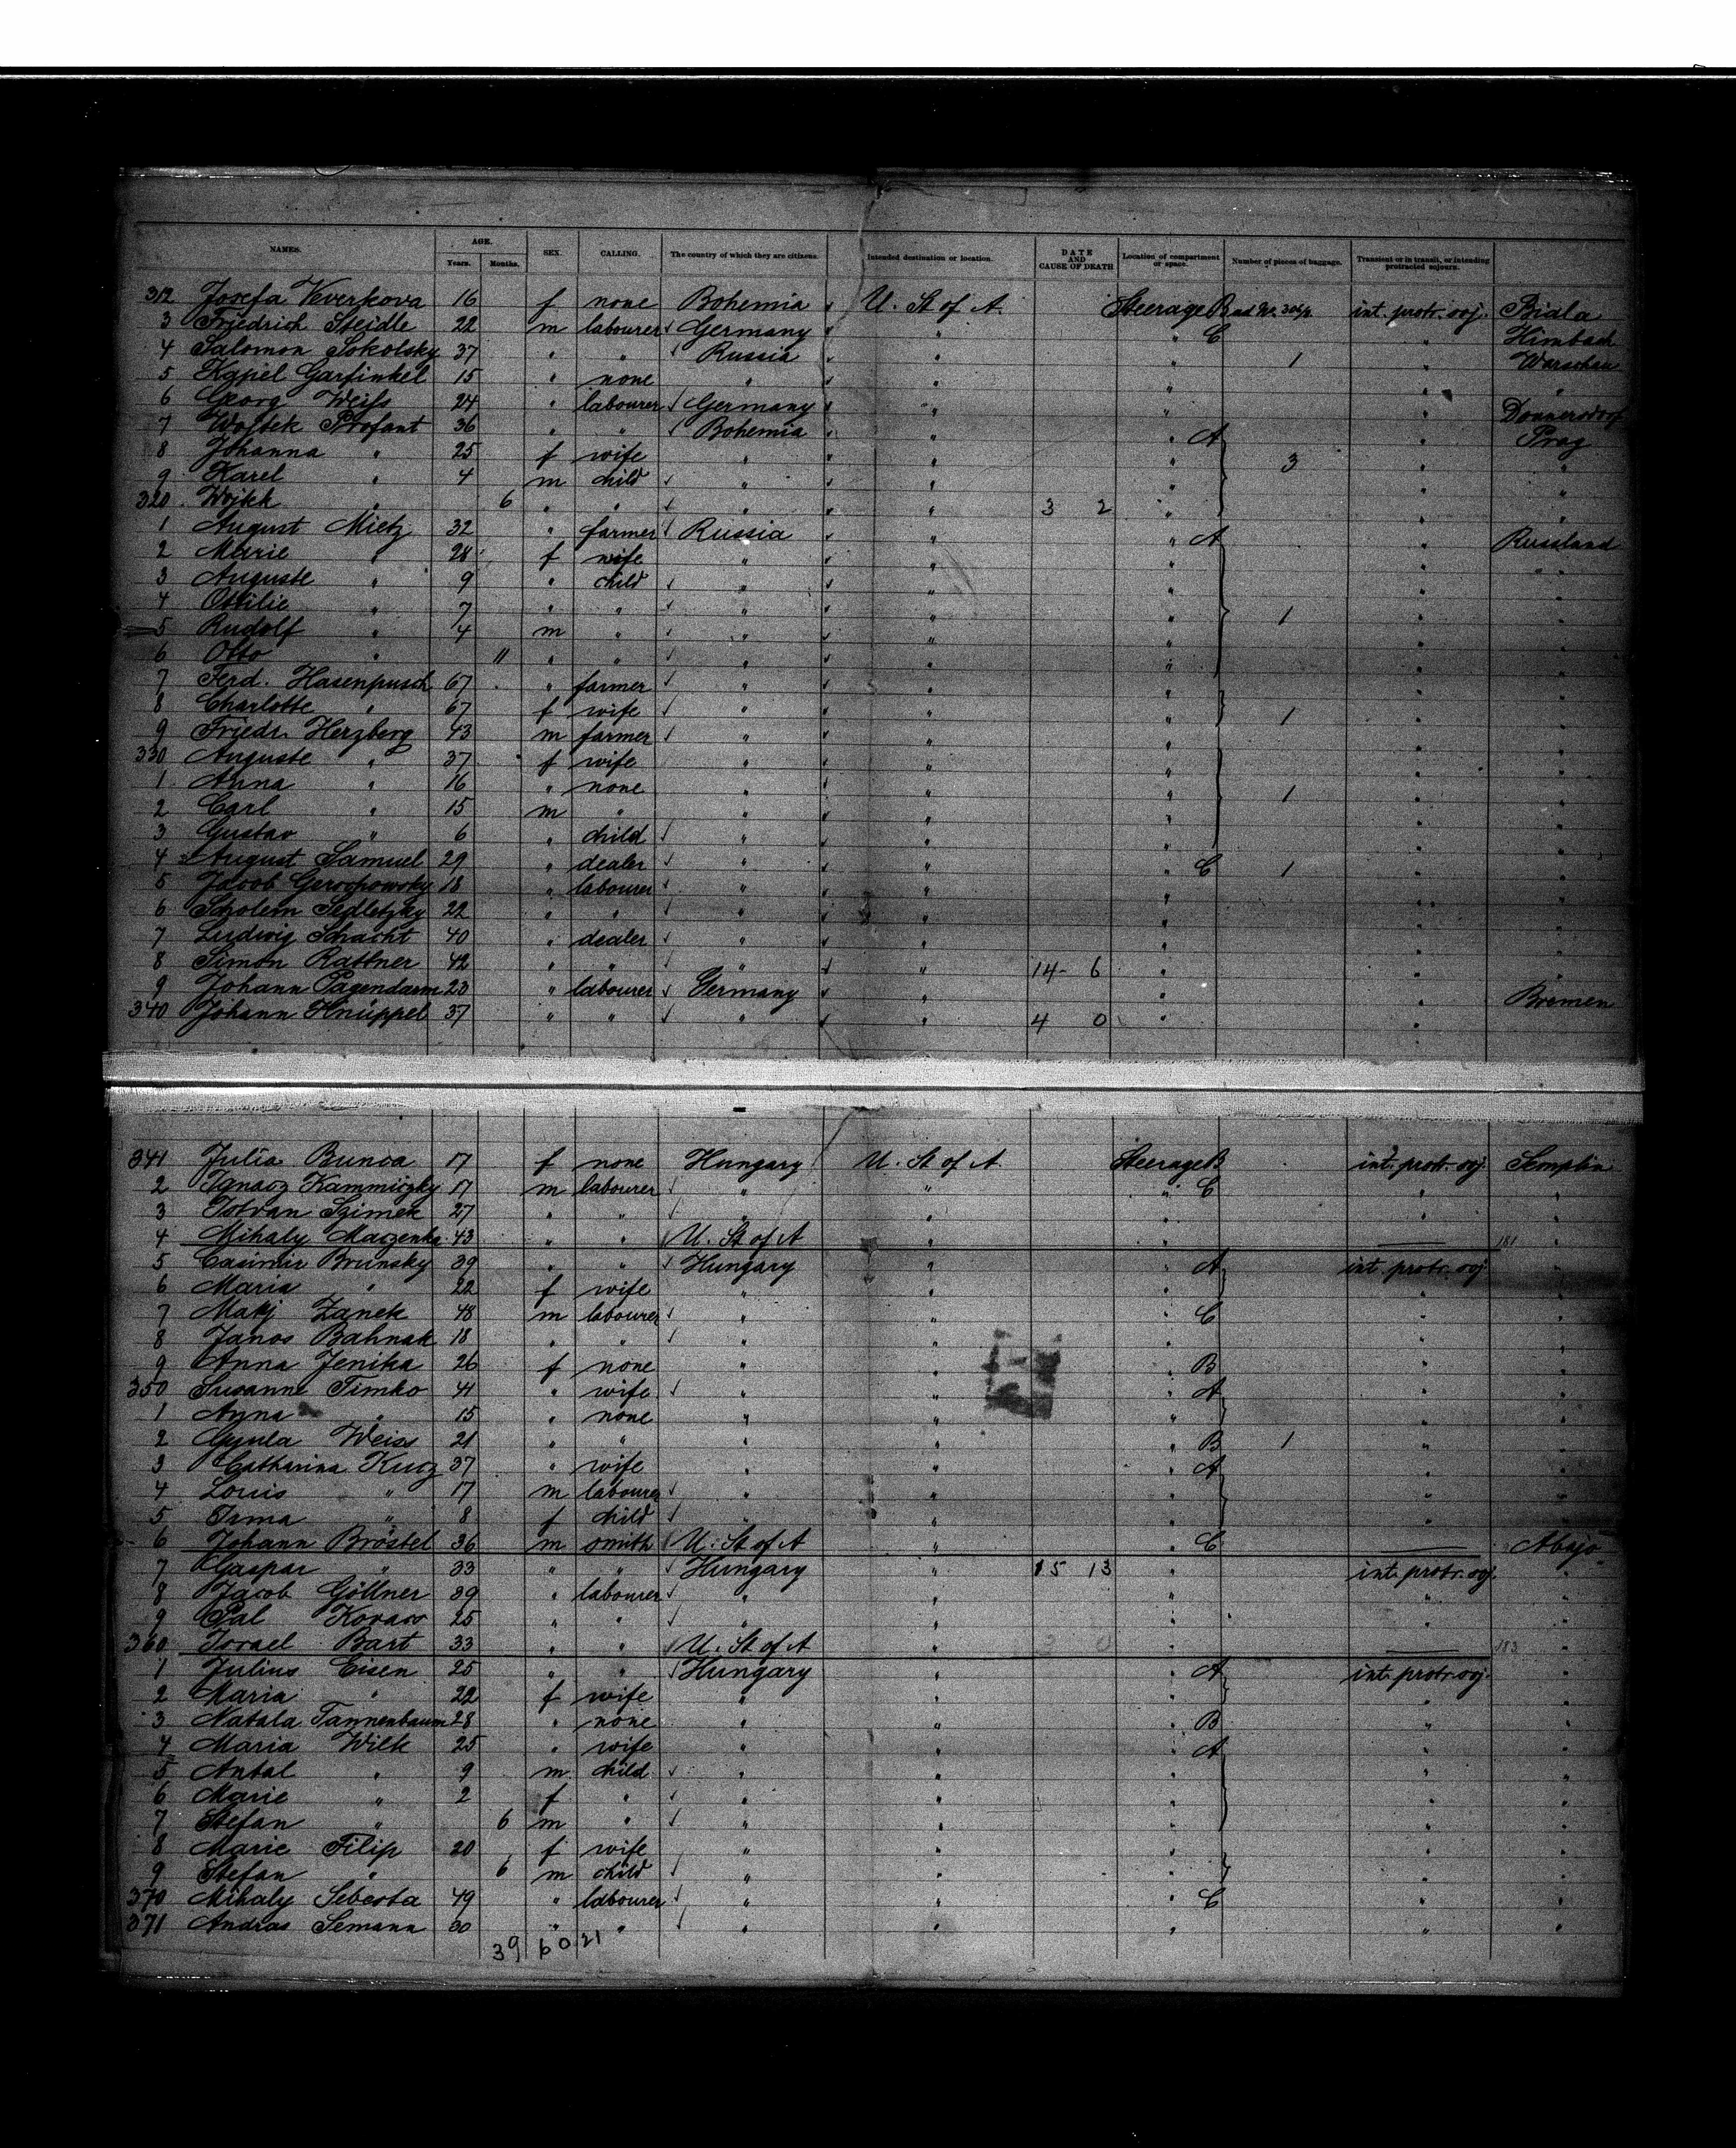 NAMES. AGE. Years. Months. SEX. CALLING. The country of which they are citizens. Intended destination or location. DATE AND CAUSE OF DEATH Location of compartment or space. Number of pieces of baggage. Transient or in transit, or intending protracted sojourn.
312 Josefa Veverkova 16 f none Bohemia U. St of A. Steerage B int. protr. soj. Biala
3 Friedrich Steidle 22 m labourer Germany " " C " Himbach
4 Salomon Sokolsky 37 " " Russia " " 1 " Warschau
5 Kapel Garfinkel 15 " none " " " " "
6 Georg Weiss 24 " labourer Germany " " " Donnersdorf
7 Wojtek Profant 36 " " Bohemia " " A " Prag
8 Johanna " 25 f wife " " " 3 " "
9 Karel " 4 m child " " " " "
320 " 6 " " " " 3 2 " " "
1 August Mietz 32 " farmer Russia " " A " Russland
2 Marie " 28 f wife " " " " "
3 Auguste " 9 " child " " " " "
4 Ottilie " 7 " " " " " 1 " "
5 Rudolf " 4 m " " " " " "
6 Otto " 11 " " " " " " "
7 Ferd. Hasenpusch 67 " farmer " " " " "
8 Charlotte " 67 f wife " " " 1 " "
9 Friedr. Herzberg 43 m farmer " " " " "
330 Auguste " 37 f wife " " " " "
1 Anna " 16 " none " " " 1 " "
2 Carl " 15 m " " " " " "
3 Gustav " 6 " child " " " " "
4 August Samuel 29 " dealer " " " C 1 " "
5 Jacob Gerschowsky 18 " labourer " " " " "
6 Scholem Sedletzky 22 " " " " " " "
7 Ludwig Schacht 40 " dealer " " " " "
8 Simon Rattner 42 " " " " 14 - 6 " " "
9 Johann Pagendarm 23 " labourer Germany " " " Bremen
340 Johann Knüppel 37 " " " " 4 0 " "
341 Julia Bunca 17 f none Hungary U. St of A. Steerage B int. protr. soj. Semplin
2 Ignacz Kammiczky 17 m labourer " " " C " "
3 Istvan Szimek 27 " " " " " " "
4 Mihaly Maczenka 43 " " U. St of A " " 181 "
5 Casimir Brunsky 39 " " Hungary " " A int. protr. soj. "
6 Maria " 22 f wife " " " " "
7 Janek 48 m labourer " " " C " "
8 Janos Bahnak 18 " " " " " " "
9 Anna Jenika 26 f none " " " B " "
350 Susanne Timko 41 " wife " " " A " "
1 Anna " 15 " none " " " " "
2 Gyula Weiss 21 " " " " " B 1 " "
3 Catharina Kucz 37 " wife " " " A " "
4 Louis " 17 m labourer " " " " "
5 Irma " 8 f child " " " " "
6 Johann Bröstel 36 m smith U. St of A " " C Abajo
7 Gaspar " 33 " " Hungary " 15 13 " int. protr. soj. "
8 Jacob Göllner 39 " labourer " " " " "
9 Pal Kovacs 25 " " " " " " "
360 Israel Bart 33 " " U. St of A " " 183 "
1 Julius Eisen 25 " " Hungary " " A int. protr. soj. "
2 Maria " 22 f wife " " " " "
3 Natala Tannenbaum 28 " none " " " B " "
4 Maria Wilk 25 " wife " " " A " "
5 Antal " 9 m child " " " " "
6 Marie " 2 f " " " " " "
7 Stefan " 6 m " " " " " "
8 Marie Filip 20 f wife " " " " "
9 Stefan " 6 m child " " " " "
370 Mihaly Sebesta 49 " labourer " " " C " "
371 Andras Semann 30 " " " " " " "
39 60 21